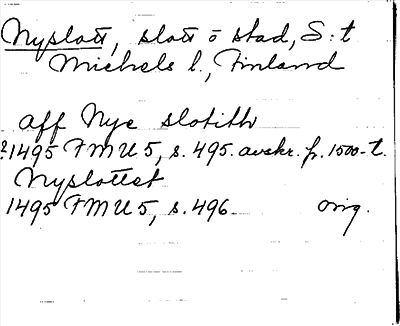 Nyslott, slott o stad, S:t
Michels l., Finland
aff Nye slotith
?1495 FMU 5, s. 495. avskr. fr. 1500-t.
Nyslottet
1495 FMU 5, s. 496 orig.